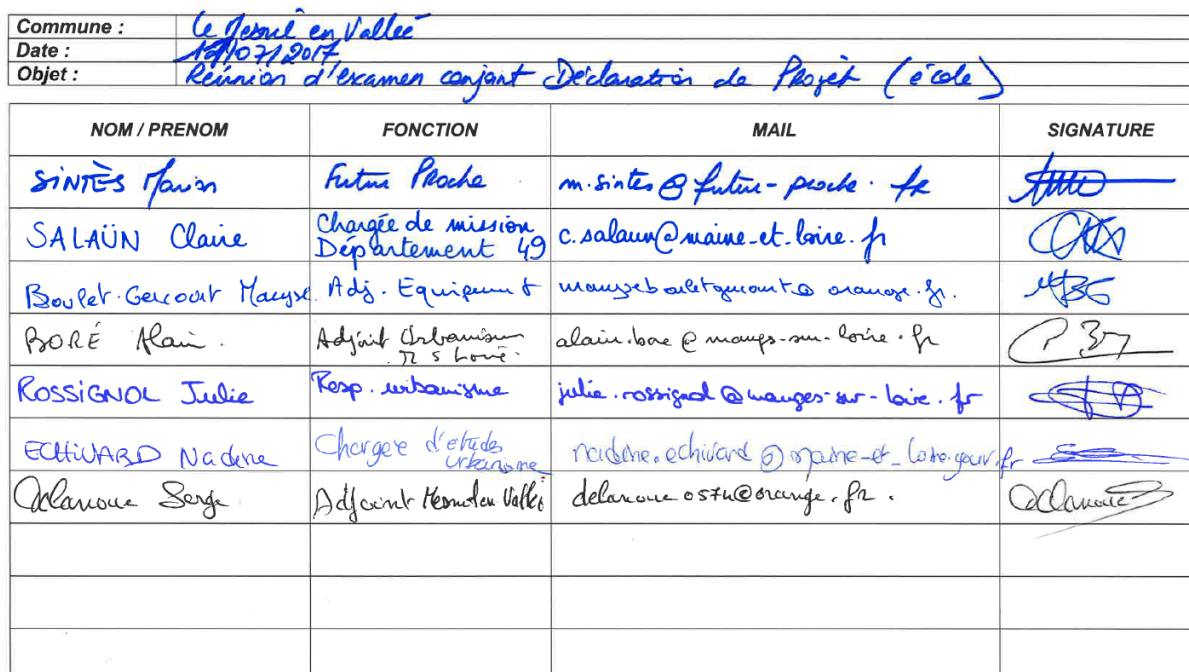 Commune : Le Mesnil en Vallée
Date : 19/07/2017
Objet : Réunion d'examen conjoint Déclaration de Projet (école)
NOM / PRENOM FONCTION MAIL SIGNATURE
SINTÈS Marion Futur Proche m.sintes@futur-proche.fr
SALAÜN Claire Chargée de mission
Département 49 c.salaun@maine-et-loire.fr
Boulet-Gercourt Maryse Adj. Equipement
BORÉ Alain Adjoint Urbanisme
alain.bore@mauges-sur-loire.fr
ROSSIGNOL Julie Resp. urbanisme julie.rossignol@mauges-sur-loire.fr
ECHIVARD Nadine Chargée d'etudes
urbanisme nadine.echivard@maine-et-loire.gouv.fr
Delanoue Serge Adjoint Mesnil en Vallée delanoue0574@orange.fr.